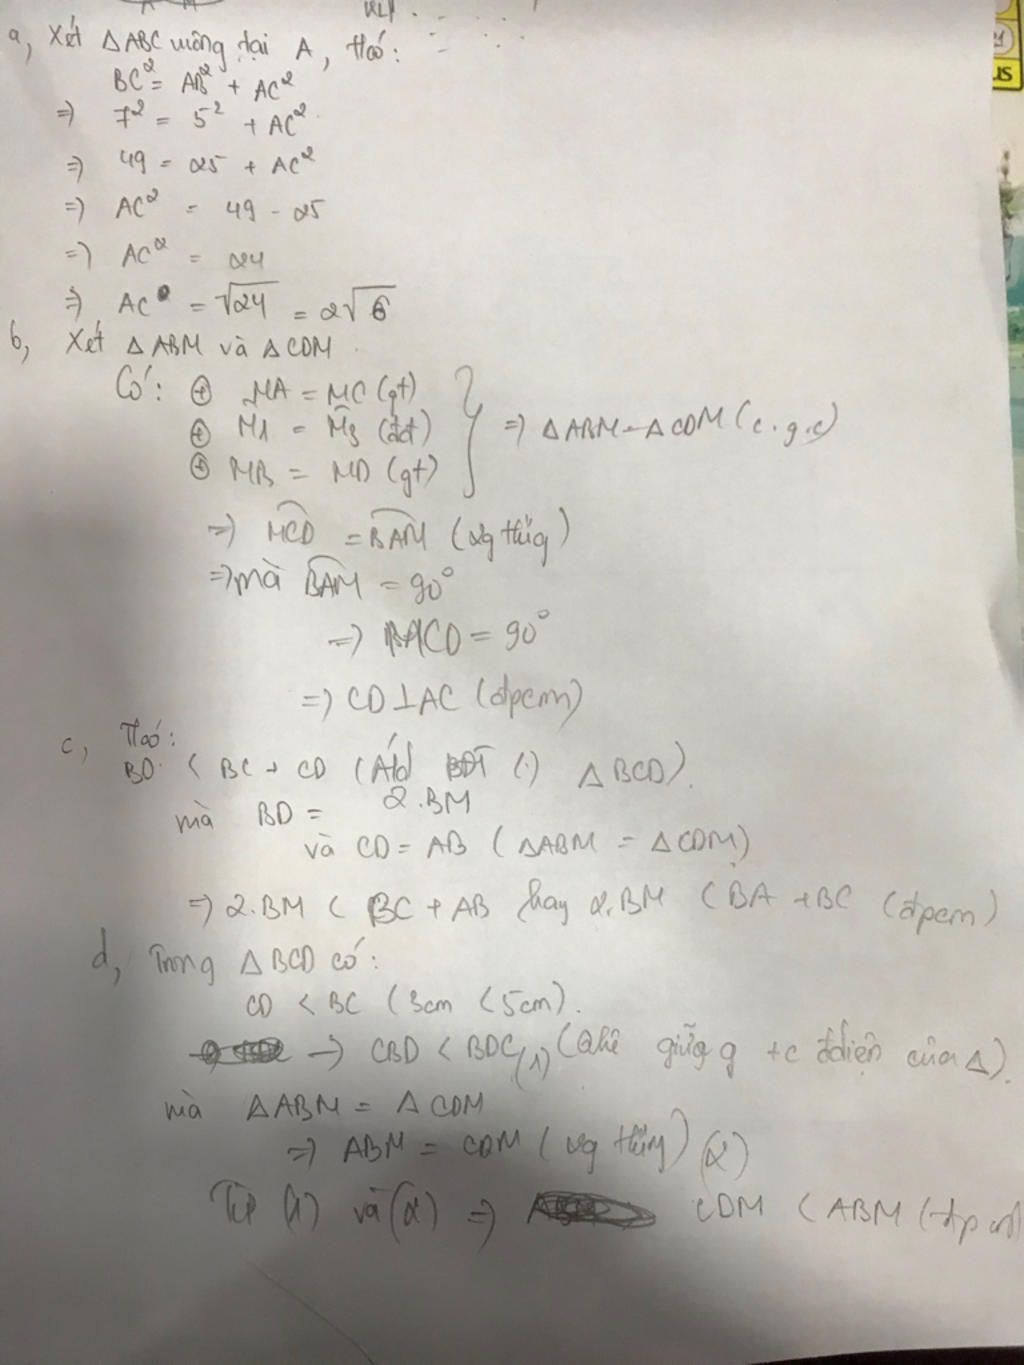 a, Xét △ABC vuông tại A, ta có:
BC² = AB² + AC²
=> 7² = 5² + AC²
=> 49 = 25 + AC²
=> AC² = 49 - 25
=> AC² = 24
=> AC = √24 = 2√6
b, Xét △ABM và △CDM
Có: ⊕ MA = MC (gt)
⊕ M1 = M3 (đđ) => △ABM = △CDM (c.g.c)
⊕ MB = MD (gt)
=> MCD = BAM (2g t/ứng)
=> mà BAM = 90°
=> MCD = 90°
=> CD ⊥ AC (đpcm)
c, Ta có:
BD < BC + CD (Ád BĐT (.) △BCD)
mà BD = 2.BM
và CD = AB (△ABM = △CDM)
=> 2.BM < BC + AB hay 2.BM < BA + BC (đpcm)
d, Trong △BCD có:
CD < BC (3cm < 5cm).
=> CBD < BDC (1) (Qhê giữa g + c đdiện của △)
mà △ABM = △CDM
=> ABM = CDM (2g t/ứng) (2)
Từ (1) và (2) => CDM < ABM (đpcm)